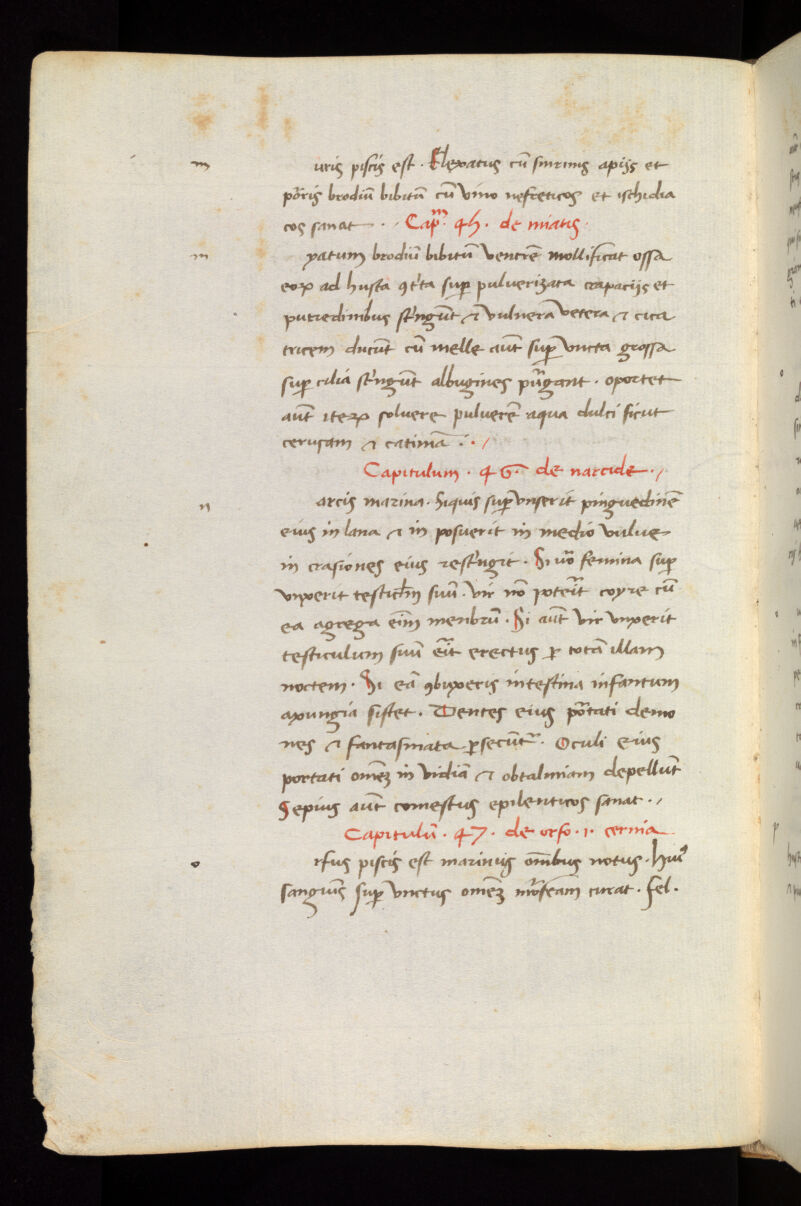 m uris piscis est. Elexatus cū smirnis apijs et
poris brodiū bibitū cū vino nefreticos et ischidia
cos sanat. Capm. 45. de miatis.
m yatum brodiū bibitū ventrē mollificat ossa
eorꝝ ad husta ꝯtrita suꝑ pulverizata crapacijs et
putredinibus strīgūt et vulnera vetera et cica
tricem ducūt cū melle aūt suꝑ uncta grossa
suꝑ cilia strīgūt albugines purgant. oportet
aūt iterꝝ solvere pulverē aqua dulci sicut
cerusam et catimiā.
Capitulum. 46. de narcide.
n arcis marina. Siquis suꝑ unserit pinguedinē
eius in lana et in posuerit in medio vulve
in crasiones eius restrīgit. Si vō femina suꝑ
unxerit testiculm suū. vir nō poterit coyre cū
ea agrega eim menbrū. Si aūt vir unxerit
testiculum suū erit erectus ꝑ totā illam
noctem. Si eā ꝯbuxeris intestina infantum
axungia sistet. Dentes eius portati demo
nes et fantasmata ꝑsecūtr. Oculi eius
portati omēꝫ in vidiā et obtalmiam depellūt
Sepius aūt comestus epilenticos sanat.
Capitulū. 47. de orfo. i. cernia
o rfus piscis est marinus omībus notus. Huiꝰ
sanguis suꝑ unctus omēꝫ morfeam curat. fel.